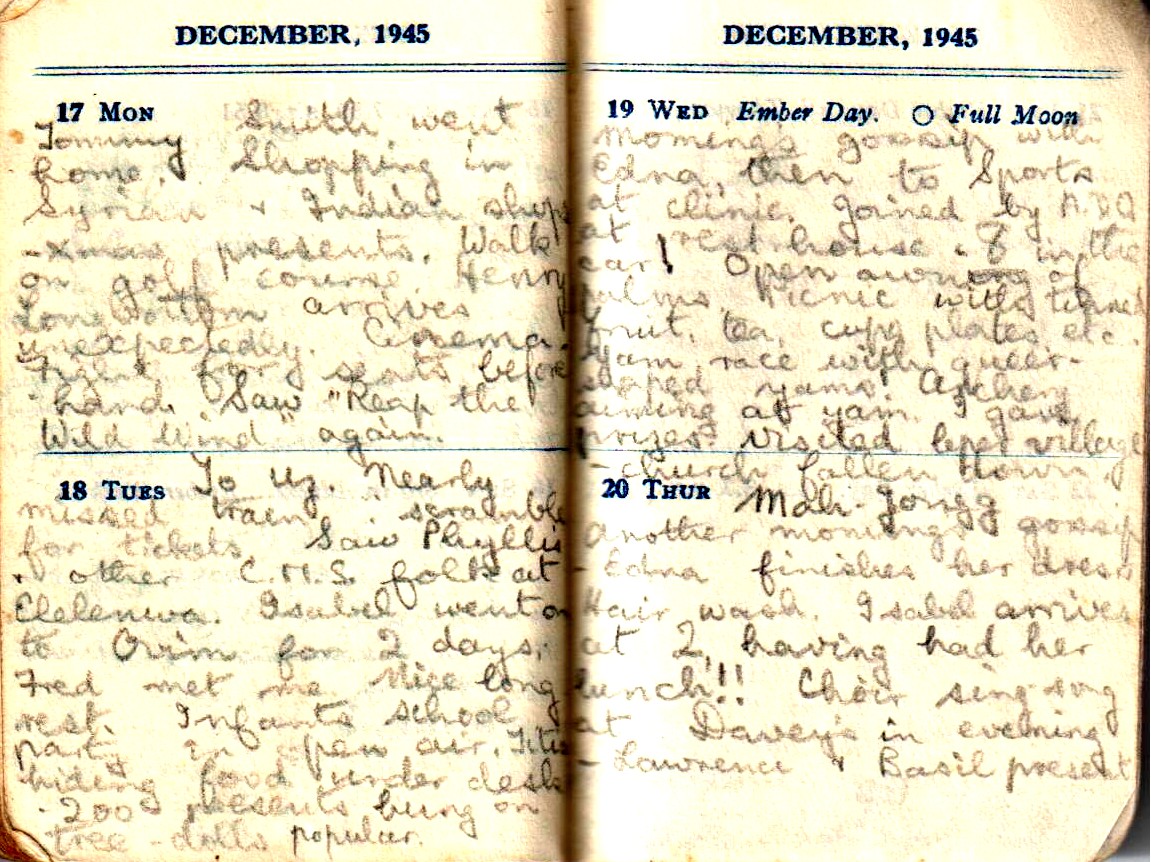 DECEMBER, 1945
17 MON Smith went
Tommy
home. Shopping in
Syrian + Indian shops
- xmas presents. Walk
on golf course. Henry
Longbottom arrives
unexpectedly. Cinema.
Fight for seats before
hand. Saw "Reap the
Wild Wind" again.
18 TUES To Uz. Nearly
missed train, scramble
for tickets. Saw Phyllis
+ other C.M.S. folk at
Elelenwa. Isabel went on
to Ovim for 2 days.
Fred met me. Nice long
rest. Infants school
party in open air.
hiding food under desks
- 200 presents hung on
tree - dolls popular.
DECEMBER, 1945
19 WED Ember Day. Full Moon
Morning's gossip with
Edna, then to Sports
at clinic. Joined by A.D.O
at rest house. 8 in the
car! Open awning of
palms. Picnic with tinned
fruit, tea, cups plates etc.
Yam race with queer-
shaped yams! Archery
aiming at yam. I gave
prizes. Visited leper village
- church fallen down.
20 THUR Mah-Jongg
Another morning's gossip
- Edna finishes her dress
Hair wash. Isabel arrives
at 2, having had her
lunch!! Choir sing-song
at Davey's in evening
- Lawrence + Basil present